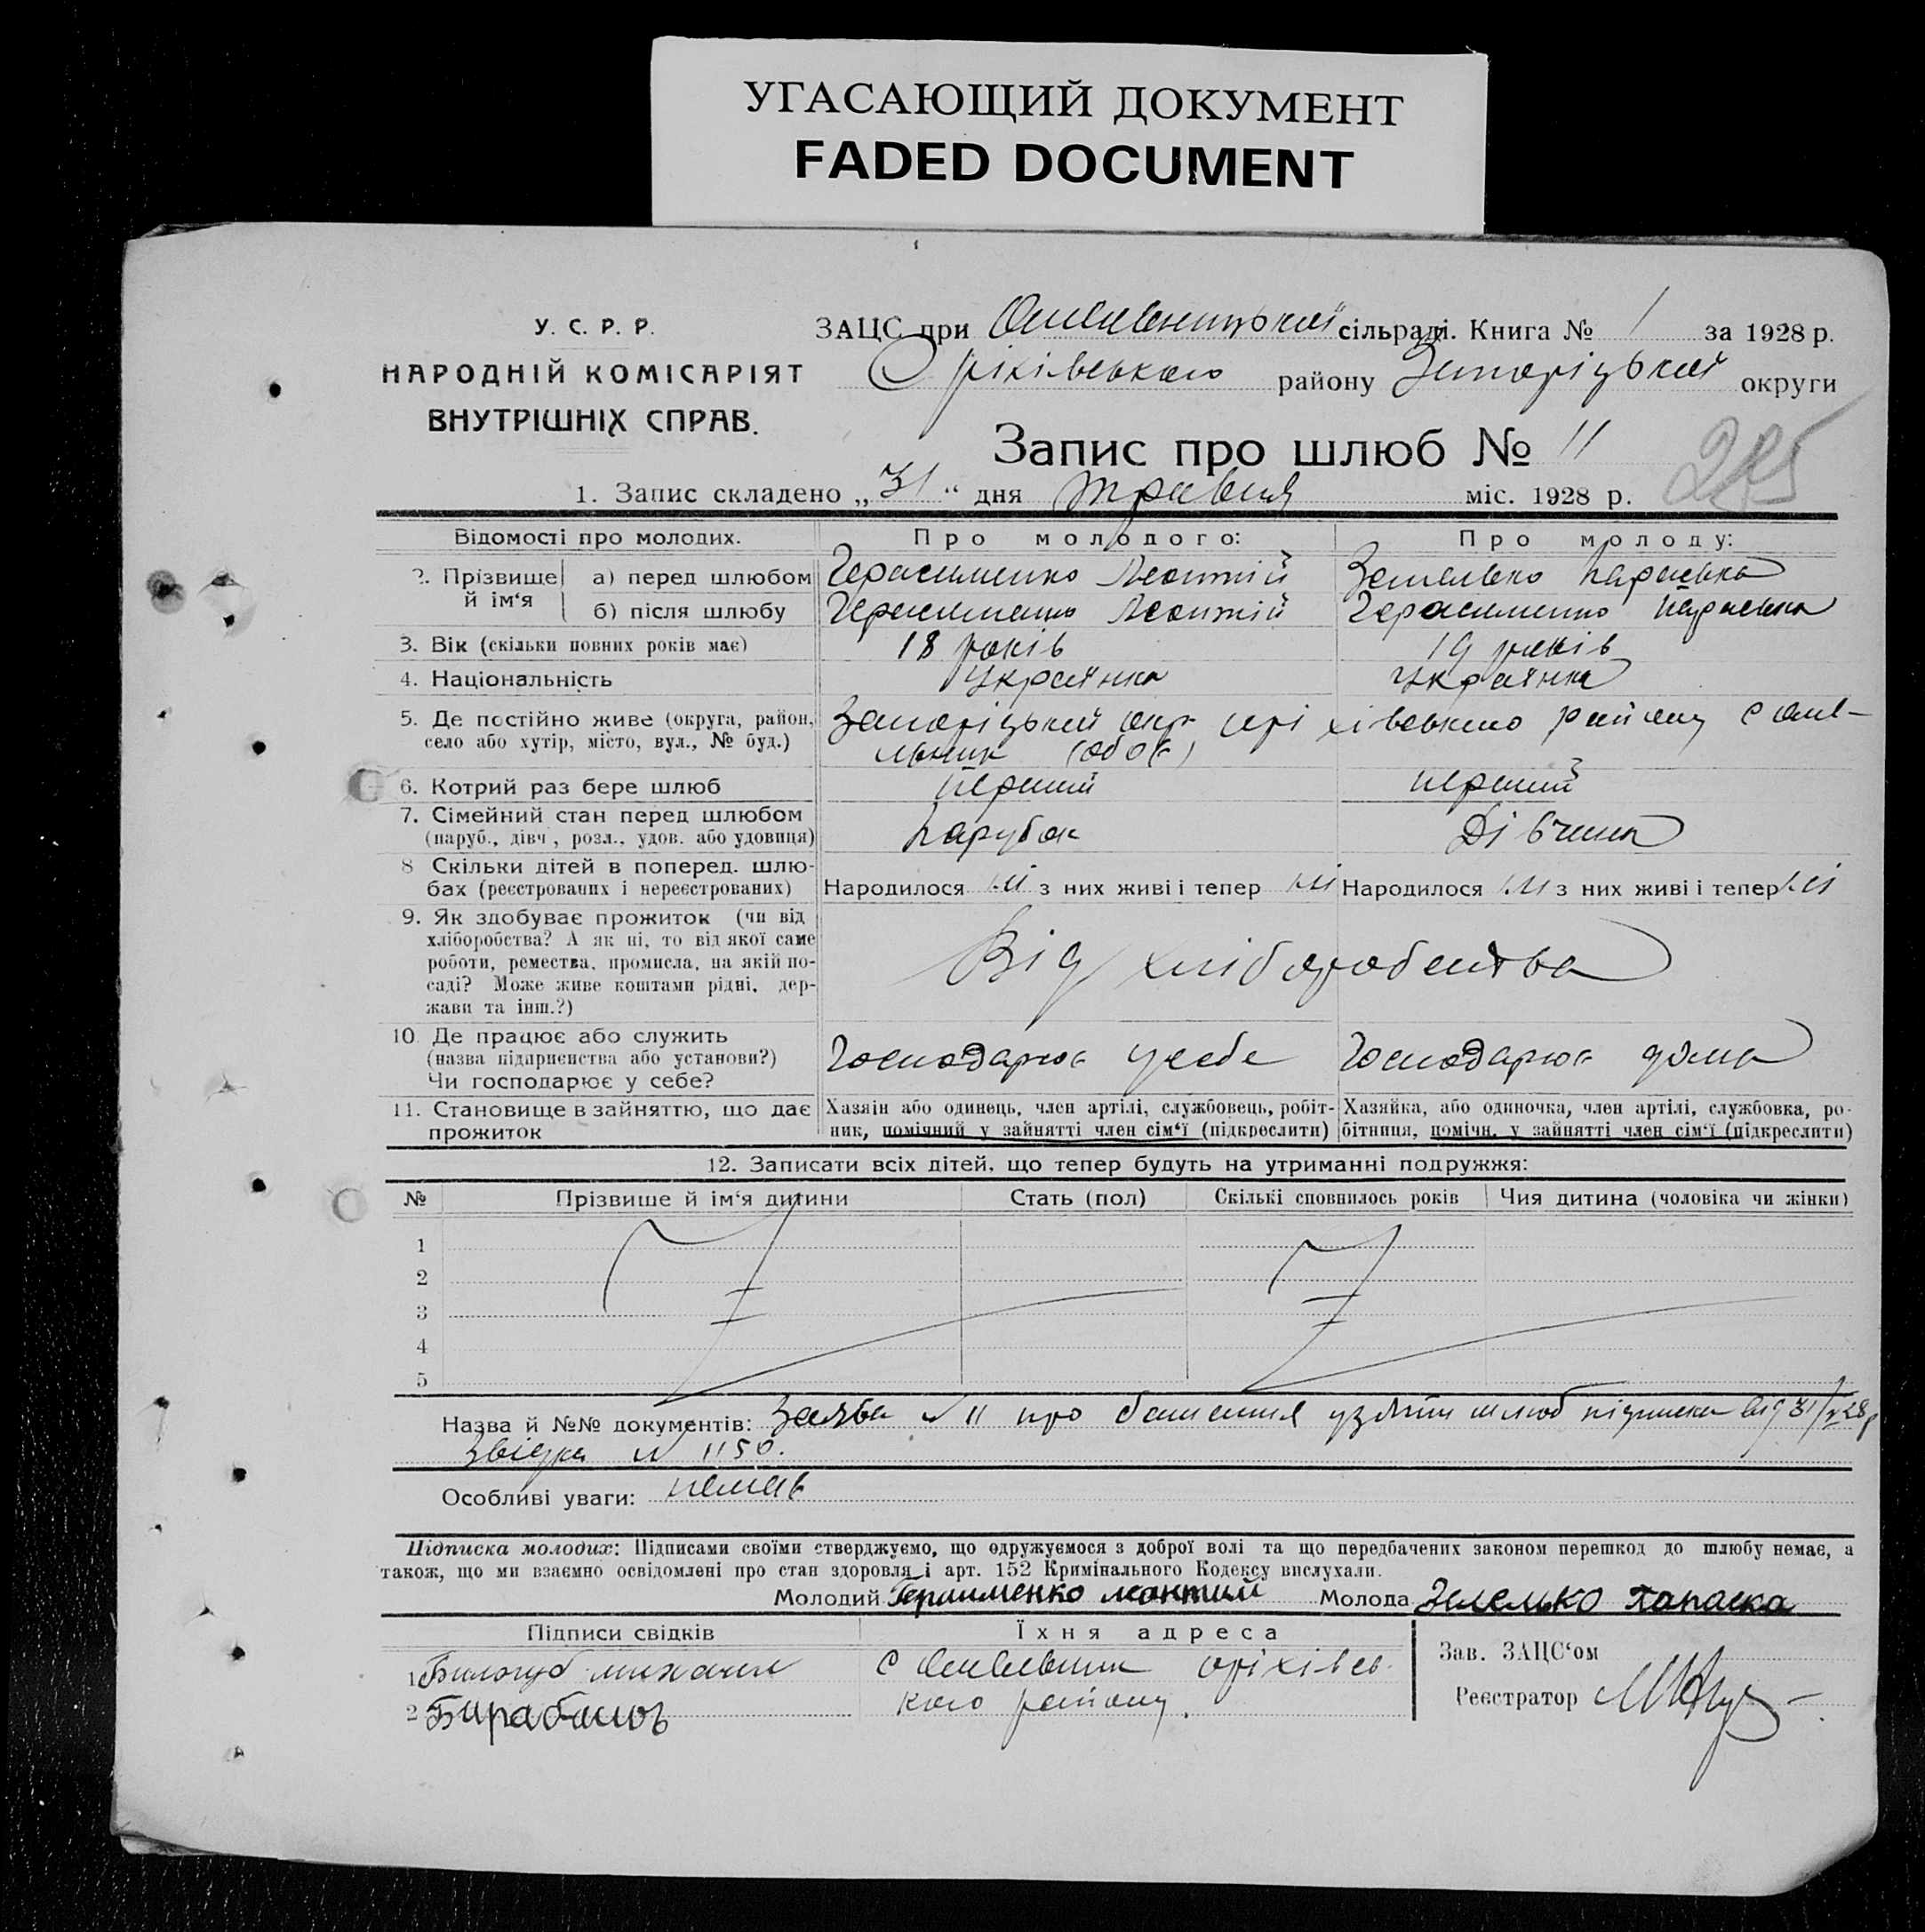 УГАСАЮЩИЙ ДОКУМЕНТ
FADED DOCUMENT
У. С. Р. Р.
НАРОДНІЙ КОМІСАРІЯТ
ВНУТРІШНІХ СПРАВ.
ЗАЦС при Омельницькій сільраді. Книга № 1 за 1928 р.
Оріхівського району Запоріцької округи
Запис про шлюб № 11
285
1. Запис складено „31“ дня травня міс. 1928 р.
Відомості про молодих. Про молодого: Про молоду:
2. Прізвище й ім‘я
а) перед шлюбом Герасименко Леонтій Параська
б) після шлюбу Герасименко Леонтій Герасименко Параська
3. Вік (скільки повних років має) 18 років 19 років
4. Національність Українка Українка
5. Де постійно живе (округа, район, Запоріцький окр. оріхівського району с Оме-
село або хутір, місто, вул., № буд.) льник (обоє)
6. Котрий раз бере шлюб перший перший
7. Сімейний стан перед шлюбом
(паруб., дівч., розл., удов. або удовиця) Парубок Дівчина
8 Скільки дітей в поперед. шлю-
бах (реєстрованих і нереєстрованих) Народилося ні з них живі і тепер ні Народилося ні з них живі і тепер ні
9. Як здобуває прожиток (чи від
хліборобства? А як ні, то від якої саме
роботи, ремества, промисла, на якій по-
саді? Може живе коштами рідні, дер-
жави та інш.?)
Від хліборобства
10. Де працює або служить
(назва підприєнства або установи?)
Чи господарює у себе?
Господарює у себе Господарює дома
11. Становище в зайняттю, що дає
прожиток
Хазяін або одинець, член артілі, службовець, робіт-
ник, помічний у зайнятті член сім‘ї (підкреслити)
Хазяйка, або одиночка, член артілі, службовка, ро-
бітниця, помічн. у зайнятті член сім‘ї (підкреслити)
12. Записати всіх дітей, що тепер будуть на утриманні подружжя:
№ Прізвише й ім‘я дитини Стать (пол) Скількі сповнилось років Чия дитина (чоловіка чи жінки)
1
2
3
4
5
Назва й №№ документів: Заява № 11 про бажання узяти шлюб підписка від 31/V 28 р
Звідка № 1150.
Особливі уваги: немає
Підписка молодих: Підписами своїми стверджуємо, що одружуємося з доброї волі та що передбачених законом перешкод до шлюбу немає, а
також, що ми взаємно освідомлені про стан здоровля і арт. 152 Кримінального Кодексу вислухали.
Молодий Герашменко Молода Параска
Підписи свідків Їхня адреса
1 Билогуб михаил с Омельник оріхівсь-
2 кого району.
Зав. ЗАЦС‘ом
Реєстратор